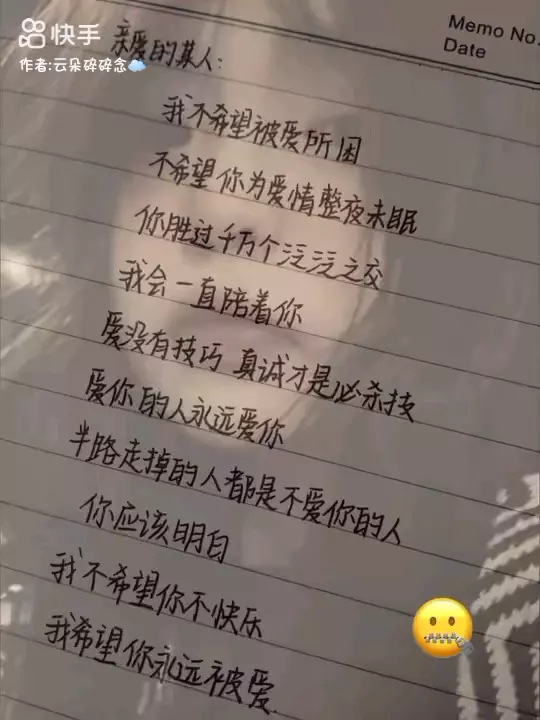 快手
作者:云朵碎碎念
Memo No.
Date
亲爱的某人:
我不希望被爱所困
不希望你为爱情整夜未眠
你胜过千万个泛泛之交
我会一直陪着你
爱没有技巧 真诚才是必杀技
爱你的人永远爱你
半路走掉的人都是不爱你的人
你应该明白
我不希望你不快乐
我希望你永远被爱.